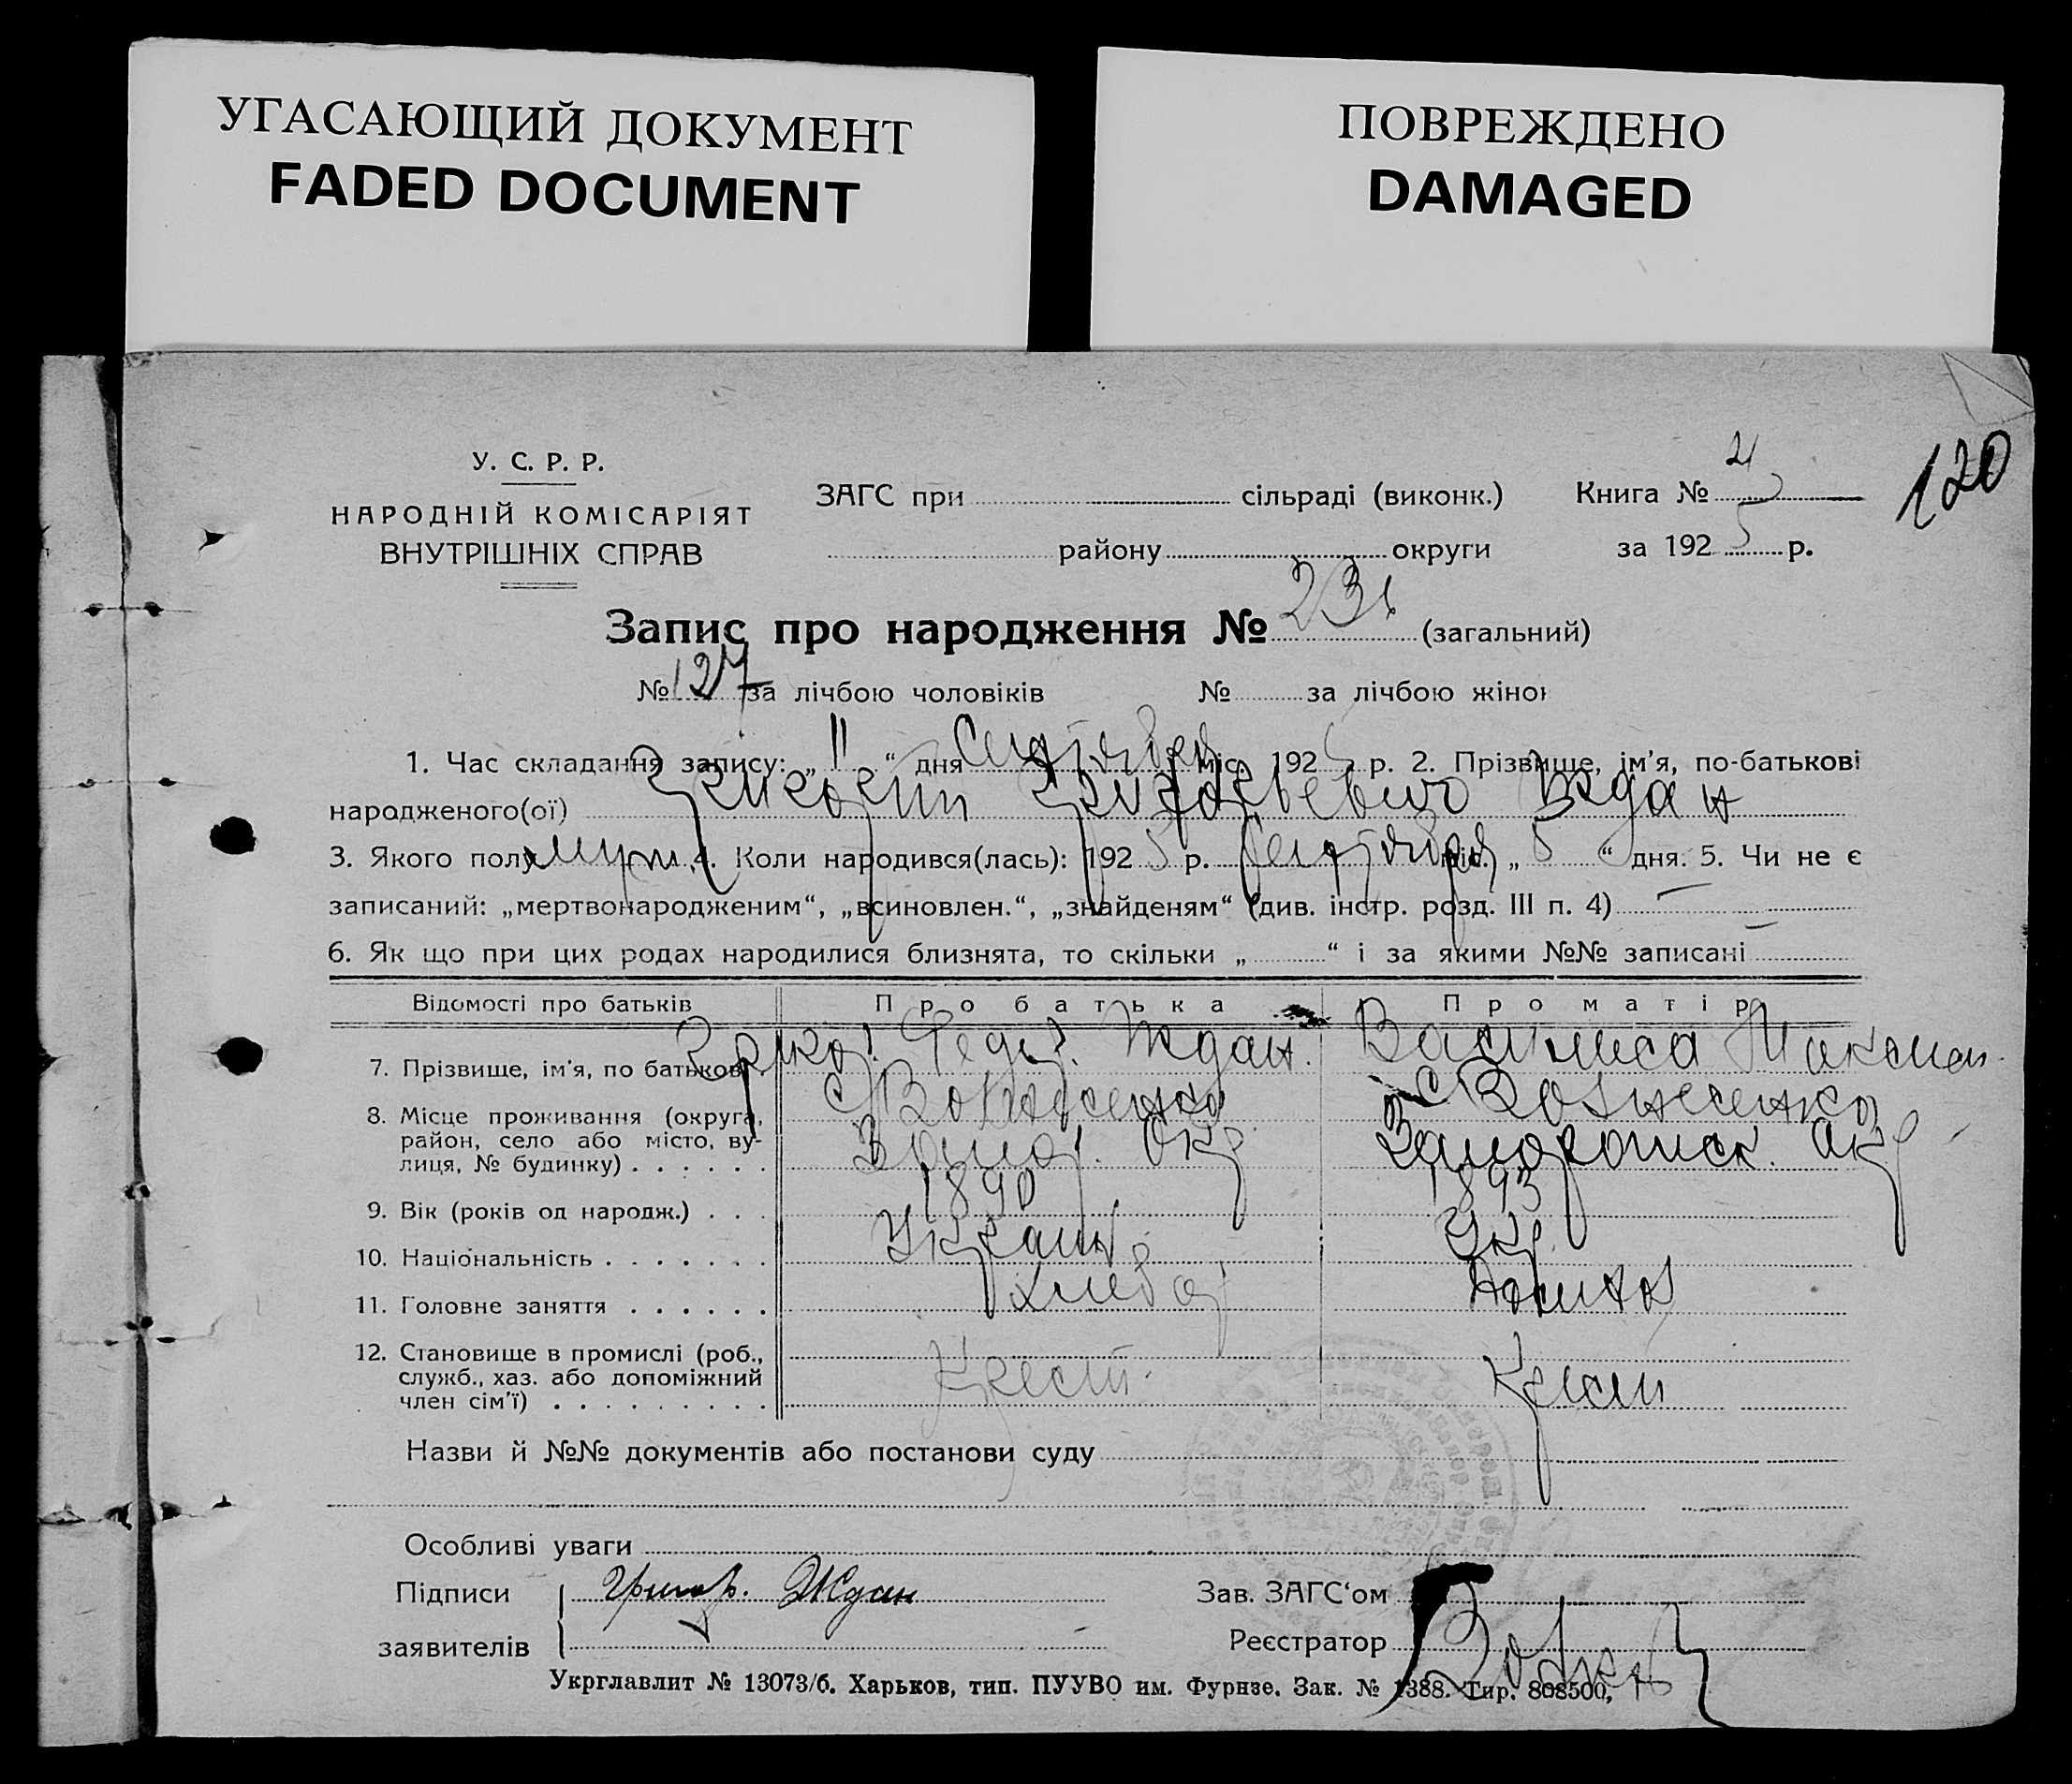 УГАСАЮЩИЙ ДОКУМЕНТ
FADED DOCUMENT
ПОВРЕЖДЕНО
DAMAGED
120
У. С. Р. Р.
НАРОДНІЙ КОМІСАРІЯТ
ВНУТРІШНІХ СПРАВ
ЗАГС при сільраді (виконк.)
району округи
Книга №
за 192 5 р.
Запис про народження № (загальний)
№ 127 за лічбою чоловіків № за лічбою жінок
1. Час складання запису: „ 11 “ дня Сентября міс. 192 р. 2. Прізвище, ім'я, по-батькові
народженого(ої) Ждан
3. Якого полу муж. 4. Коли народився(лась): 192 5 р. Сентября міс. „ 5 “ дня. 5. Чи не є
записаний: „мертвонародженим“, „всиновлен.“, „знайденям“ (див. інстр. розд. III п. 4) —
6. Як що при цих родах народилися близнята, то скільки „ “ і за якими №№ записані —
Відомості про батьків Про батька Про матір
7. Прізвище, ім'я, по батькові . Ждан. Василиса Максим.
8. Місце проживання (округа, с Вознесенка с Вознесенка
район, село або місто, ву- Запор. Окр Запорожск. Окр
лиця, № будинку) . . . . . .
9. Вік (років од народж.) . . . 1890 1893
10. Національність . . . . . . . Украин. Укр.
11. Головне заняття . . . . . . хлебор
12. Становище в промислі (роб., Крест. Крест
служб., хаз. або допоміжний
член сім'ї) . . . . . . . . .
Назви й №№ документів або постанови суду
Особливі уваги
Підписи Григор. Ждан
заявителів
Зав. ЗАГС‘ом
Реєстратор
Укрглавлит № 13073/б. Харьков, тип. ПУУВО им. Фурнзе. Зак. № 1388. Тир. 808500,